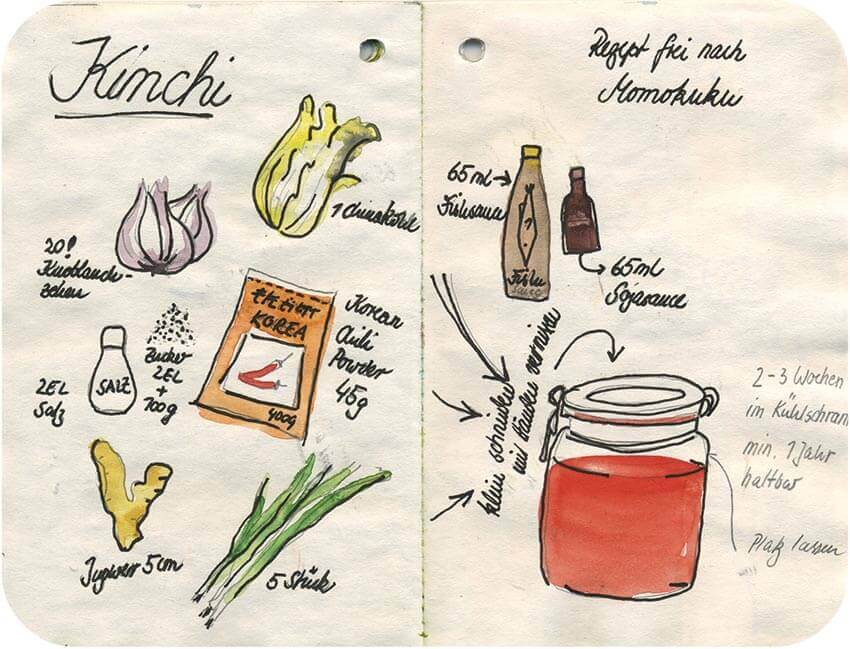 Kimchi
1 Chinakohl
20!
Knoblauch-
zehen
KOREA
400g
Korean
Chili
Powder
45g
2EL
Salz
SALZ
Zucker
2EL
+
100g
Ingwer 5cm
5 Stück
Rezept frei nach
Momokuku
65 ml
Fishsauce
Fish
sauce
65ml
Sojasauce
klein schneiden
mit Händen vermixen
2-3 Wochen
im Kühlschran
min. 1 Jahr
haltbar
Platz lassen